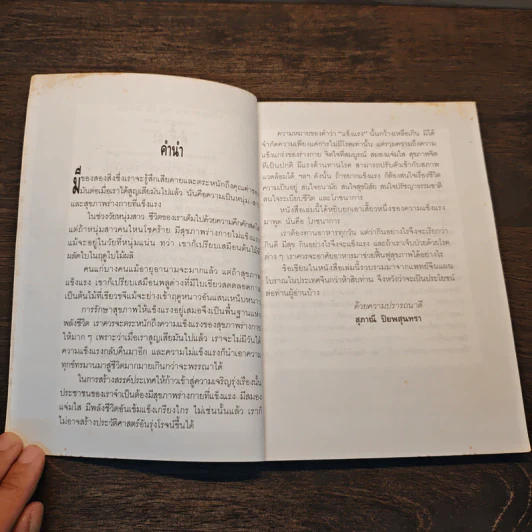 คำนำ
มีของสองสิ่งซึ่งเราจะรู้สึกเสียดายและตระหนักถึงคุณค่าของ
มันต่อเมื่อเราได้สูญเสียมันไปแล้ว นั่นคือความเป็นหนุ่ม-สาว
และสุขภาพร่างกายที่แข็งแรง
ในช่วงวัยหนุ่มสาว ชีวิตของเราเต็มไปด้วยความคึกคัก
แต่ถ้าหนุ่มสาวคนไหนโชคร้าย มีสุขภาพร่างกายไม่แข็งแรง
แม้จะอยู่ในวัยที่หนุ่มแน่น ทว่า เขาก็เปรียบเสมือนต้นไม้ที่
ผลัดใบในฤดูใบไม้ผลิ
คนแก่บางคนแม้อายุอานามจะมากแล้ว แต่ถ้าสุขภาพ
แข็งแรง เขาก็เปรียบเสมือนพลูด่างที่มีใบเขียวสดตลอดกาล
เป็นต้นไม้ที่เขียวขจีแม้จะย่างเข้าฤดูหนาวอันแสนเหน็บหนาว
การรักษาสุขภาพให้แข็งแรงอยู่เสมอจึงเป็นพื้นฐานแห่ง
พลังชีวิต เราควรจะตระหนักถึงความแข็งแรงของสุขภาพร่างกาย
ให้มาก ๆ เพราะว่าเมื่อเราสูญเสียมันไปแล้ว เราจะไม่มีวันได้
ความแข็งแรงกลับคืนมาอีก และความไม่แข็งแรงก็นำเอาความ
ทุกข์ทรมานมาสู่ชีวิตมากมายเกินกว่าจะพรรณาได้
ในการสร้างสรรค์ประเทศให้ก้าวเข้าสู่ความเจริญรุ่งเรืองนั้น
ประชาชนของเราจำเป็นต้องมีสุขภาพร่างกายที่แข็งแรง มีสมอง
แจ่มใส มีพลังชีวิตอันเข้มแข็งเกรียงไกร ไม่เช่นนั้นแล้ว เราก็
ไม่อาจสร้างประวัติศาสตร์อันรุ่งโรจน์ขึ้นได้
ความหมายของคำว่า "แข็งแรง" นั้นกว้างเหลือเกิน มิได้
จำกัดความเพียงแค่การไม่มีโรคเท่านั้น แต่รวมความถึงความ
แข็งแกร่งของร่างกาย จิตใจที่สมบูรณ์ สมองแจ่มใส สุขภาพจิต
ที่เป็นปกติ มีแรงต้านทานโรค สามารถปรับตัวเข้ากับสภาพ
แวดล้อมได้ ฯลฯ ดังนั้น ถ้าอยากแข็งแรง ก็ต้องสนใจเรื่องชีวิต
ความเป็นอยู่ สนใจอนามัย สนใจสุขนิสัย สนใจปรัชญาธรรมชาติ
สนใจระเบียบชีวิต และโภชนาการ
หนังสือเล่มนี้ได้หยิบยกเอาเสี้ยวหนึ่งของความแข็งแรง
มาพูด นั่นคือ โภชนาการ
เราต้องทานอาหารทุกวัน แต่ว่ากินอย่างไรจึงจะเรียกว่า
กินดี มิสุ กินอย่างไรจึงจะแข็งแรง และถ้าเราเจ็บป่วยด้วยโรค
ต่าง ๆ เราควรจะอาศัยอาหารมาช่วยฟื้นฟูสุขภาพได้อย่างไร
ข้อเขียนในหนังสือเล่มนี้รวบรวมมาจากแพทย์จีนแผน
โบราณในประเทศจีนกว่าห้าสิบท่าน จึงหวังว่าจะเป็นประโยชน์
ต่อท่านผู้อ่านบ้าง
ด้วยความปรารถนาดี
สุภาณี ปิยพสุนทรา